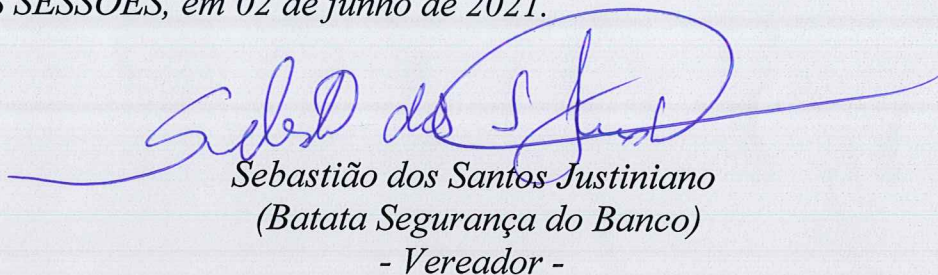 SESSÕES, em 02 de junho de 2021.
Sebastião dos Santos Justiniano
(Batata Segurança do Banco)
- Vereador -